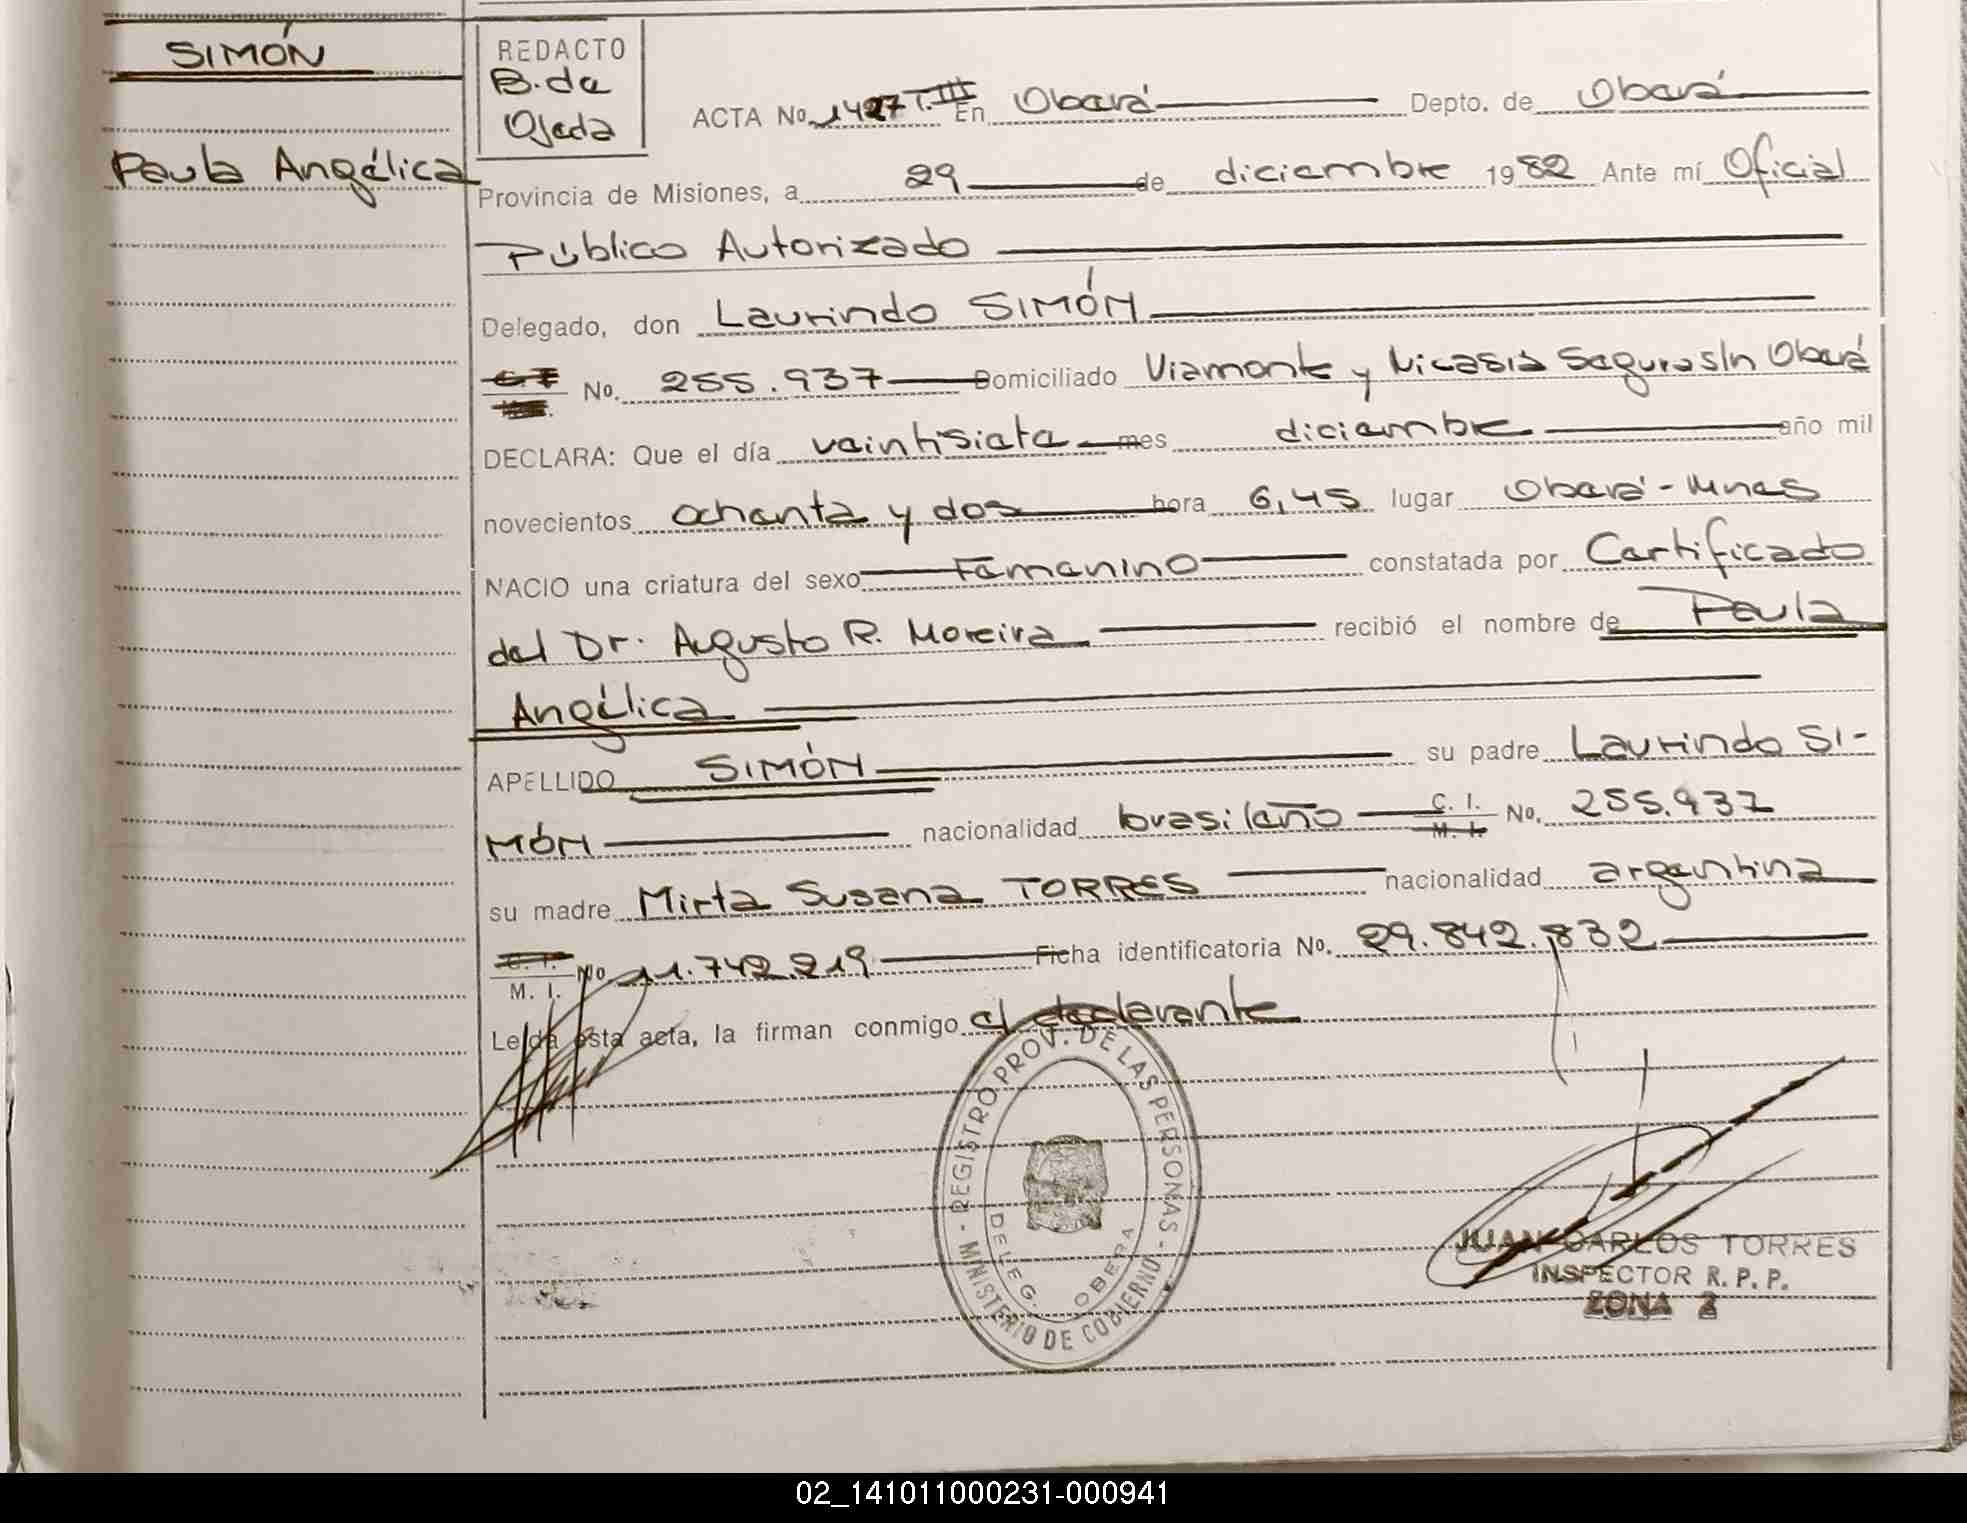 SIMÓN
Paula Angélica
REDACTO
B. de
Ojeda
ACTA No. 1427 T.III En Oberá Depto. de Oberá
Provincia de Misiones, a 29 de diciembre 1982 Ante mí Oficial
Público Autorizado
Delegado, don Laurindo SIMÓN
C. I. No. 255.937 Domiciliado Viamonte y Nicasia Segura s/n Oberá
DECLARA: Que el día veintisiete mes diciembre año mil
novecientos ochenta y dos hora 6,45 lugar Oberá - Mnes
NACIO una criatura del sexo Femenino constatada por Certificado
del Dr. Augusto R. Moreira recibió el nombre de Paula
Angélica
APELLIDO SIMÓN su padre Laurindo SI-
MÓN nacionalidad brasileño C. I. M. I. No. 255.937
su madre Mirta Susana TORRES nacionalidad argentina
C. I. M. I. No 11.742.219 Ficha identificatoria No. 29.842.832
Leída esta acta, la firman conmigo el declarante
REGISTRO PROV. DE LAS PERSONAS - MINISTERIO DE GOBIERNO -
DELEG. OBERA
JUAN CARLOS TORRES
INSPECTOR R. P. P.
ZONA 2
02_141011000231-000941